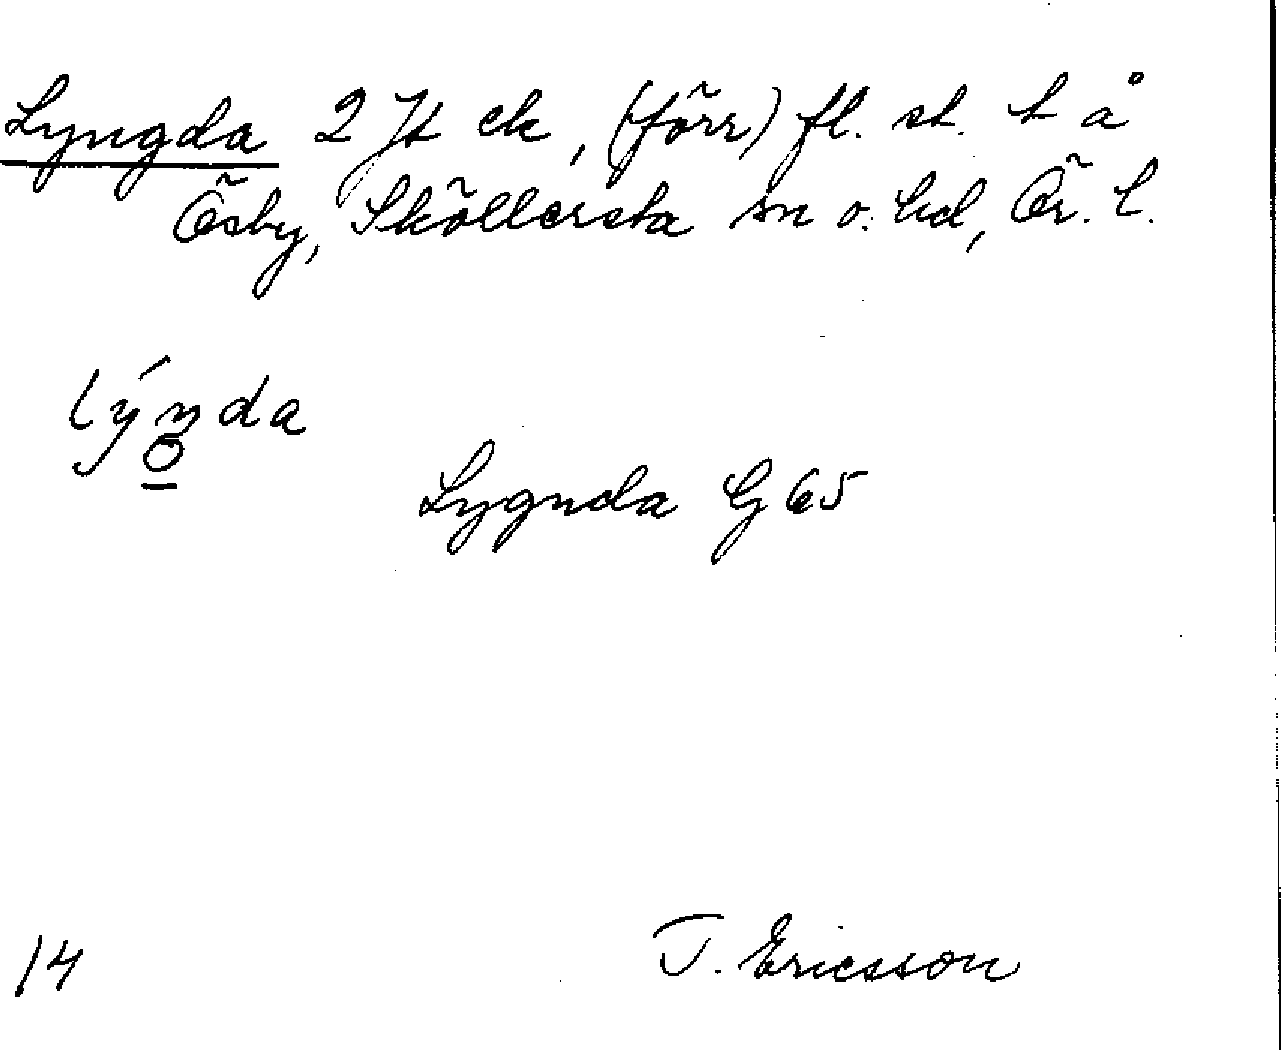 Lyngda 2 Jt ek, (förr) fl. st. t å
Ösby, Sköllersta sn o. hd, Ör. l.
lýnda
Lygnda G 65
14 T. Ericsson